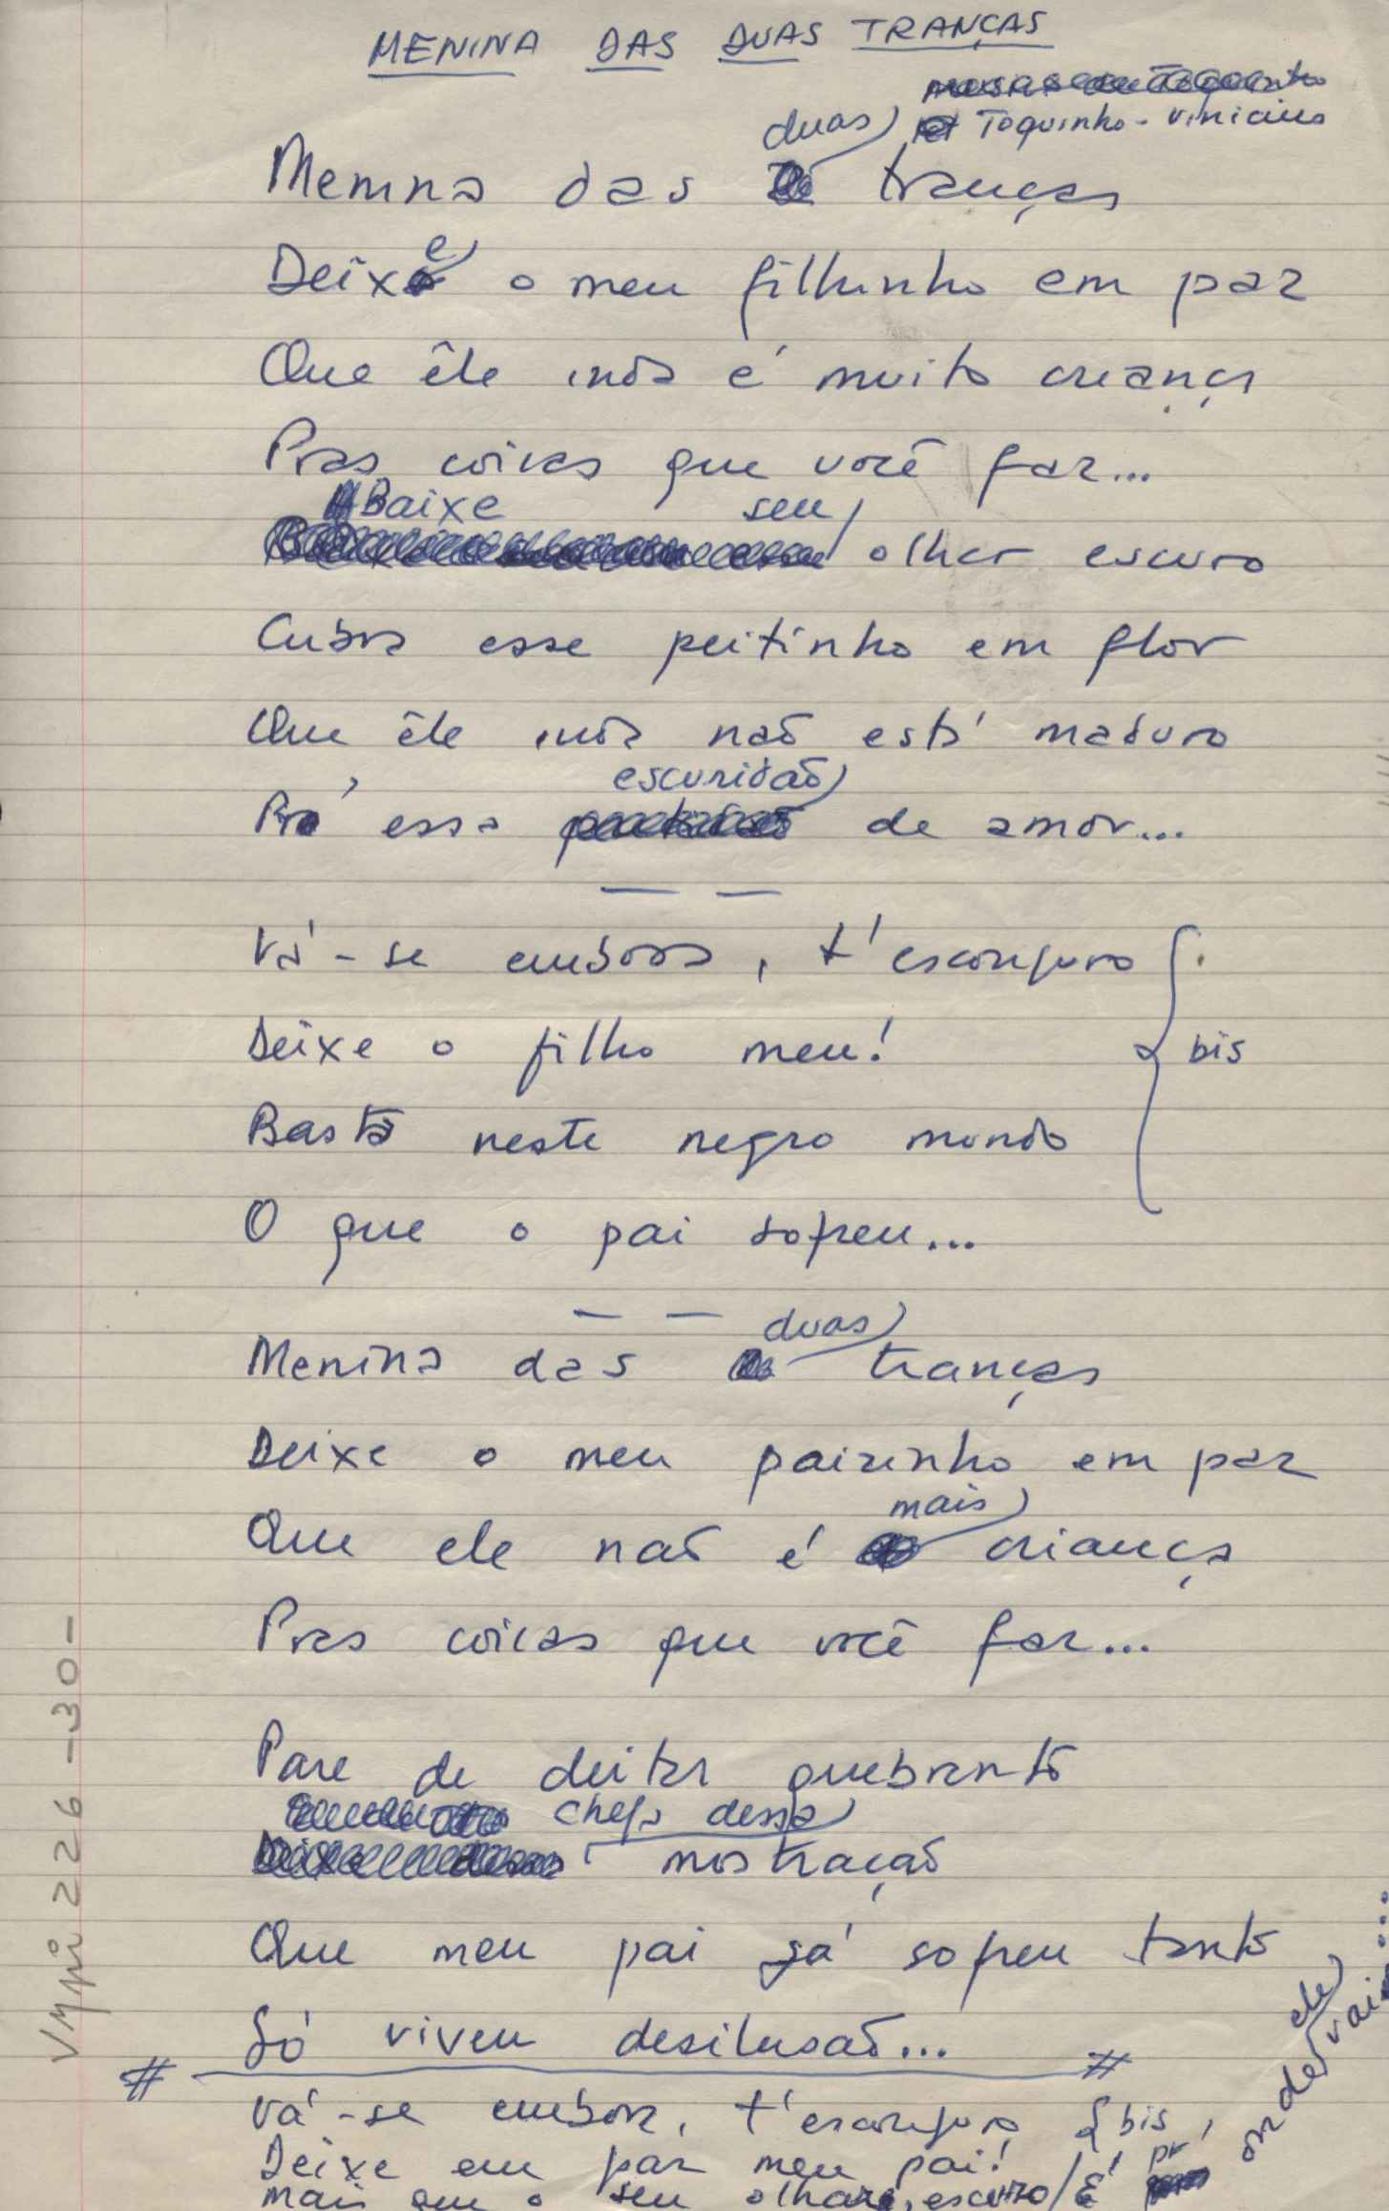 MENINA DAS DUAS TRANÇAS
Toquinho - Vinicius
duas
Menina das tranças
Deixe o meu filhinho em paz
Que êle inda é muito criança
Pras coisas que você faz...
Baixe seu
olhar escuro
Cubra esse peitinho em flor
Que êle inda não está maduro
escuridão
Prá essa de amor...
Vá-se embora, t'esconjuro
Deixe o filho meu!
bis
Basta neste negro mundo
O que o pai sofreu...
duas
Menina das tranças
Deixe o meu paizinho em paz
mais
Que ele não é criança
Pras coisas que você faz...
Pare de deitar quebranto
chega dessa
mostração
Que meu pai já sofreu tanto
Só viveu desilusão...
# #
Vá-se embora, t'esconjuro bis
Deixe em paz meu pai!
mais que o seu olhar escuro / É pr'
onde ele vai...
VMpi 226-30-